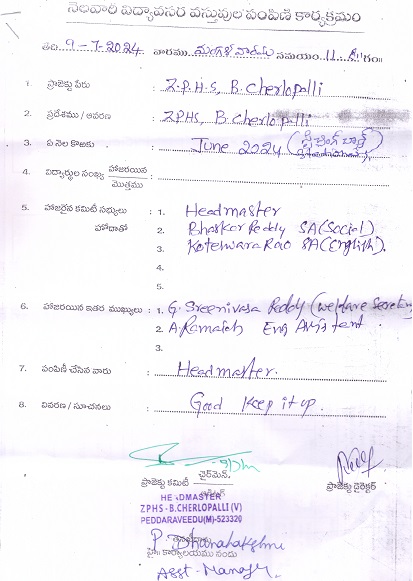 నెలవారీ విద్యావసర వస్తువుల పంపిణీ కార్యక్రమం
తేది 9-7-2024 వారము మంగళవారము సమయం 11
1. ప్రాజెక్టు పేరు : Z.P.H.S, B. Cherlopalli
2. ప్రదేశము / ఆవరణ : ZPHS, B. Cherlopalli
3. ఏ నెల కొఱకు : June 2024
4. విద్యార్థుల సంఖ్య హాజరయిన / మొత్తము :
5. హాజరైన కమిటీ సభ్యులు : 1. Headmaster
హోదాతో 2. Bhasker Reddy SA(Social)
3. Koteswara Rao SA(English).
4.
5.
6. హాజరయిన ఇతర ముఖ్యులు : 1. G. Sreenivasa Reddy (welfare Secretary
2. A. Ramaiah Eng Assistent.
3.
7. పంపిణీ చేసిన వారు : Headmaster.
8. వివరణ / సూచనలు : Good keep it up.
ప్రాజెక్టు కమిటీ ఛైర్మెన్.
ప్రాజెక్టు డైరెక్టర్
HEADMASTER
ZPHS - B.CHERLOPALLI (V)
PEDDARAVEEDU(M)-523320
P. Dhanalakshmi
కార్యాలయము నందు
Asst. Manager